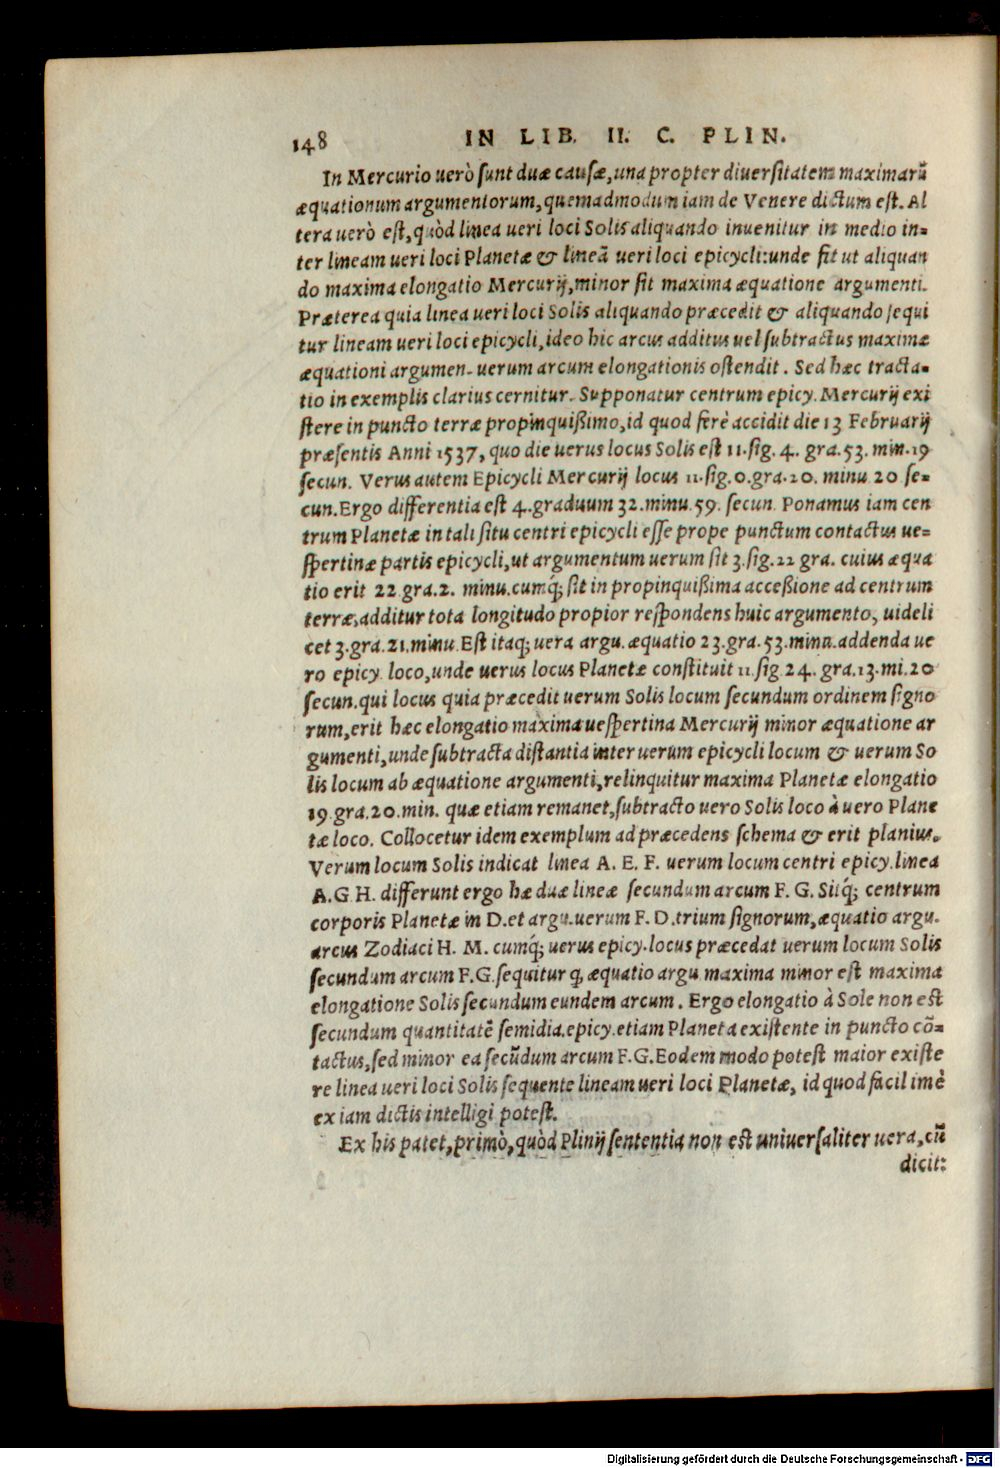 148 IN LIB. II. C. PLIN.
In Mercurio uerò sunt duæ causæ, una propter diuersitatem maximarũ
æquationum argumentorum, quemadmodum iam de Venere dictum est. Al
tera uerò est, quòd linea ueri loci Solis aliquando inuenitur in medio in=
ter lineam ueri loci Planetæ & lineã ueri loci epicycli: unde fit ut aliquan
do maxima elongatio Mercurij, minor sit maxima æquatione argumenti.
Præterea quia linea ueri loci Solis aliquando præcedit & aliquando sequi
tur lineam ueri loci epicycli, ideo hic arcus additus uel subtractus maximæ
æquationi argumen. uerum arcum elongationis ostendit. Sed hæc tracta=
tio in exemplis clarius cernitur. Supponatur centrum epicy. Mercurij exi
stere in puncto terræ propinquißimo, id quod ferè accidit die 13 Februarij
præsentis Anni 1537, quo die uerus locus Solis est 11. sig. 4. gra. 53. min. 19
secun. Verus autem Epicycli Mercurij locus 11. sig. 0. gra. 20. minu. 20 se=
cun. Ergo differentia est 4. graduum 32. minu. 59. secun. Ponamus iam cen
trum Planetæ in tali situ centri epicycli esse prope punctum contactus ue=
spertinæ partis epicycli, ut argumentum uerum sit 3. sig. 22 gra. cuius æqua
tio erit 22. gra. 2. minu. cumq́; sit in propinquißima acceßione ad centrum
terræ, additur tota longitudo propior respondens huic argumento, uideli
cet 3. gra. 21. minu. Est itaq; uera argu. æquatio 23. gra. 53. minu. addenda ue
ro epicy. loco, unde uerus locus Planetæ constituit 11. sig. 24. gra. 13. mi. 20
secun. qui locus quia præcedit uerum Solis locum secundum ordinem signo
rum, erit hæc elongatio maxima uespertina Mercurij minor æquatione ar
gumenti, unde subtracta distantia inter uerum epicycli locum & uerum So
lis locum ab æquatione argumenti, relinquitur maxima Planetæ elongatio
19. gra. 20. min. quæ etiam remanet, subtracto uero Solis loco à uero Plane
tæ loco. Collocetur idem exemplum ad præcedens schema & erit planius.
Verum locum Solis indicat linea A. E. F. uerum locum centri epicy. linea
A. G H. differunt ergo hæ duæ lineæ secundum arcum F. G. Sitq́; centrum
corporis Planetæ in D. et argu. uerum F. D. trium signorum, æquatio argu.
arcus Zodiaci H. M. cumq́; uerus epicy. locus præcedat uerum locum Solis
secundum arcum F. G. sequitur ꝙ æquatio argu maxima minor est maxima
elongatione Solis secundum eundem arcum. Ergo elongatio à Sole non est
secundum quantitatẽ semidia. epicy. etiam Planeta existente in puncto cõ=
tactus, sed minor ea secũdum arcum F. G. Eodem modo potest maior existe
re linea ueri loci Solis sequente lineam ueri loci Planetæ, id quod facilimè
ex iam dictis intelligi potest.
Ex his patet, primò, quòd Plinij sententia non est uniuersaliter uera, cũ
dicit:
Digitalisierung gefördert durch die Deutsche Forschungsgemeinschaft - DFG